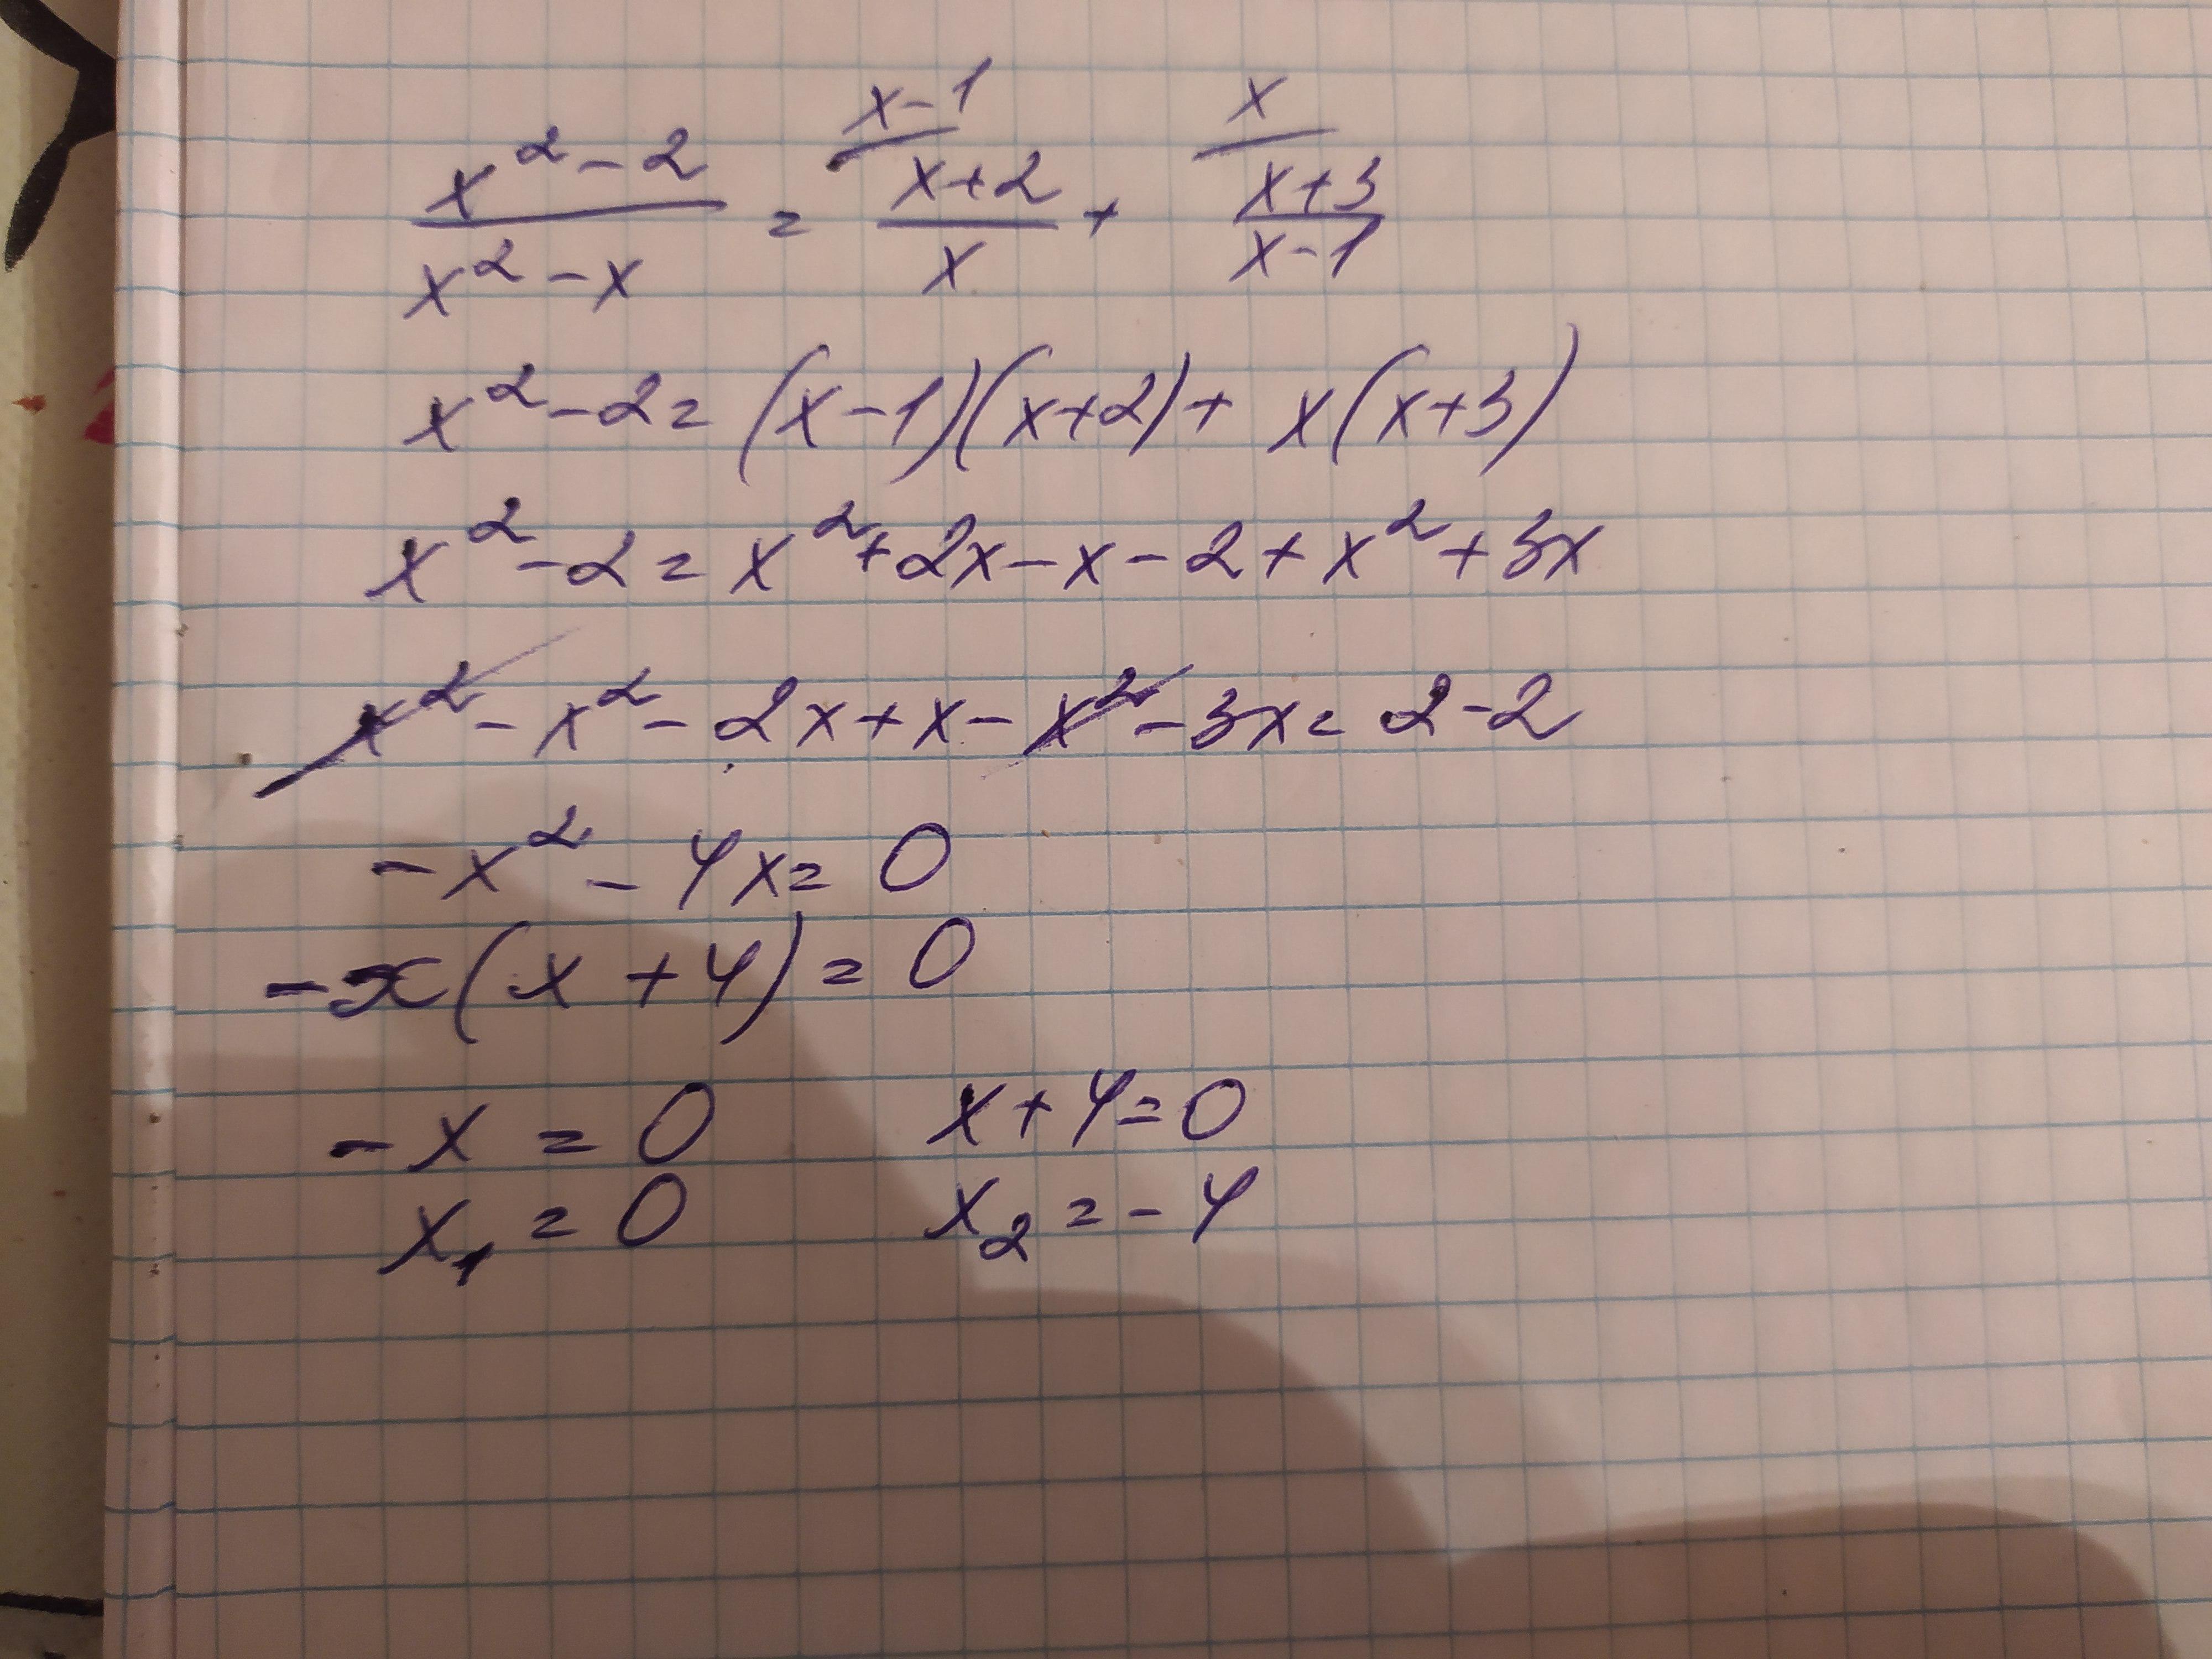 x² - 2 / x² - x = x-1/ x+2 / x + x/ x+3 / x-1
x² - 2 = (x-1)(x+2) + x(x+3)
x² - 2 = x² + 2x - x - 2 + x² + 3x
x² - x² - 2x + x - x² - 3x = 2 - 2
-x² - 4x = 0
-x(x + 4) = 0
-x = 0 x + 4 = 0
x₁ = 0 x₂ = -4